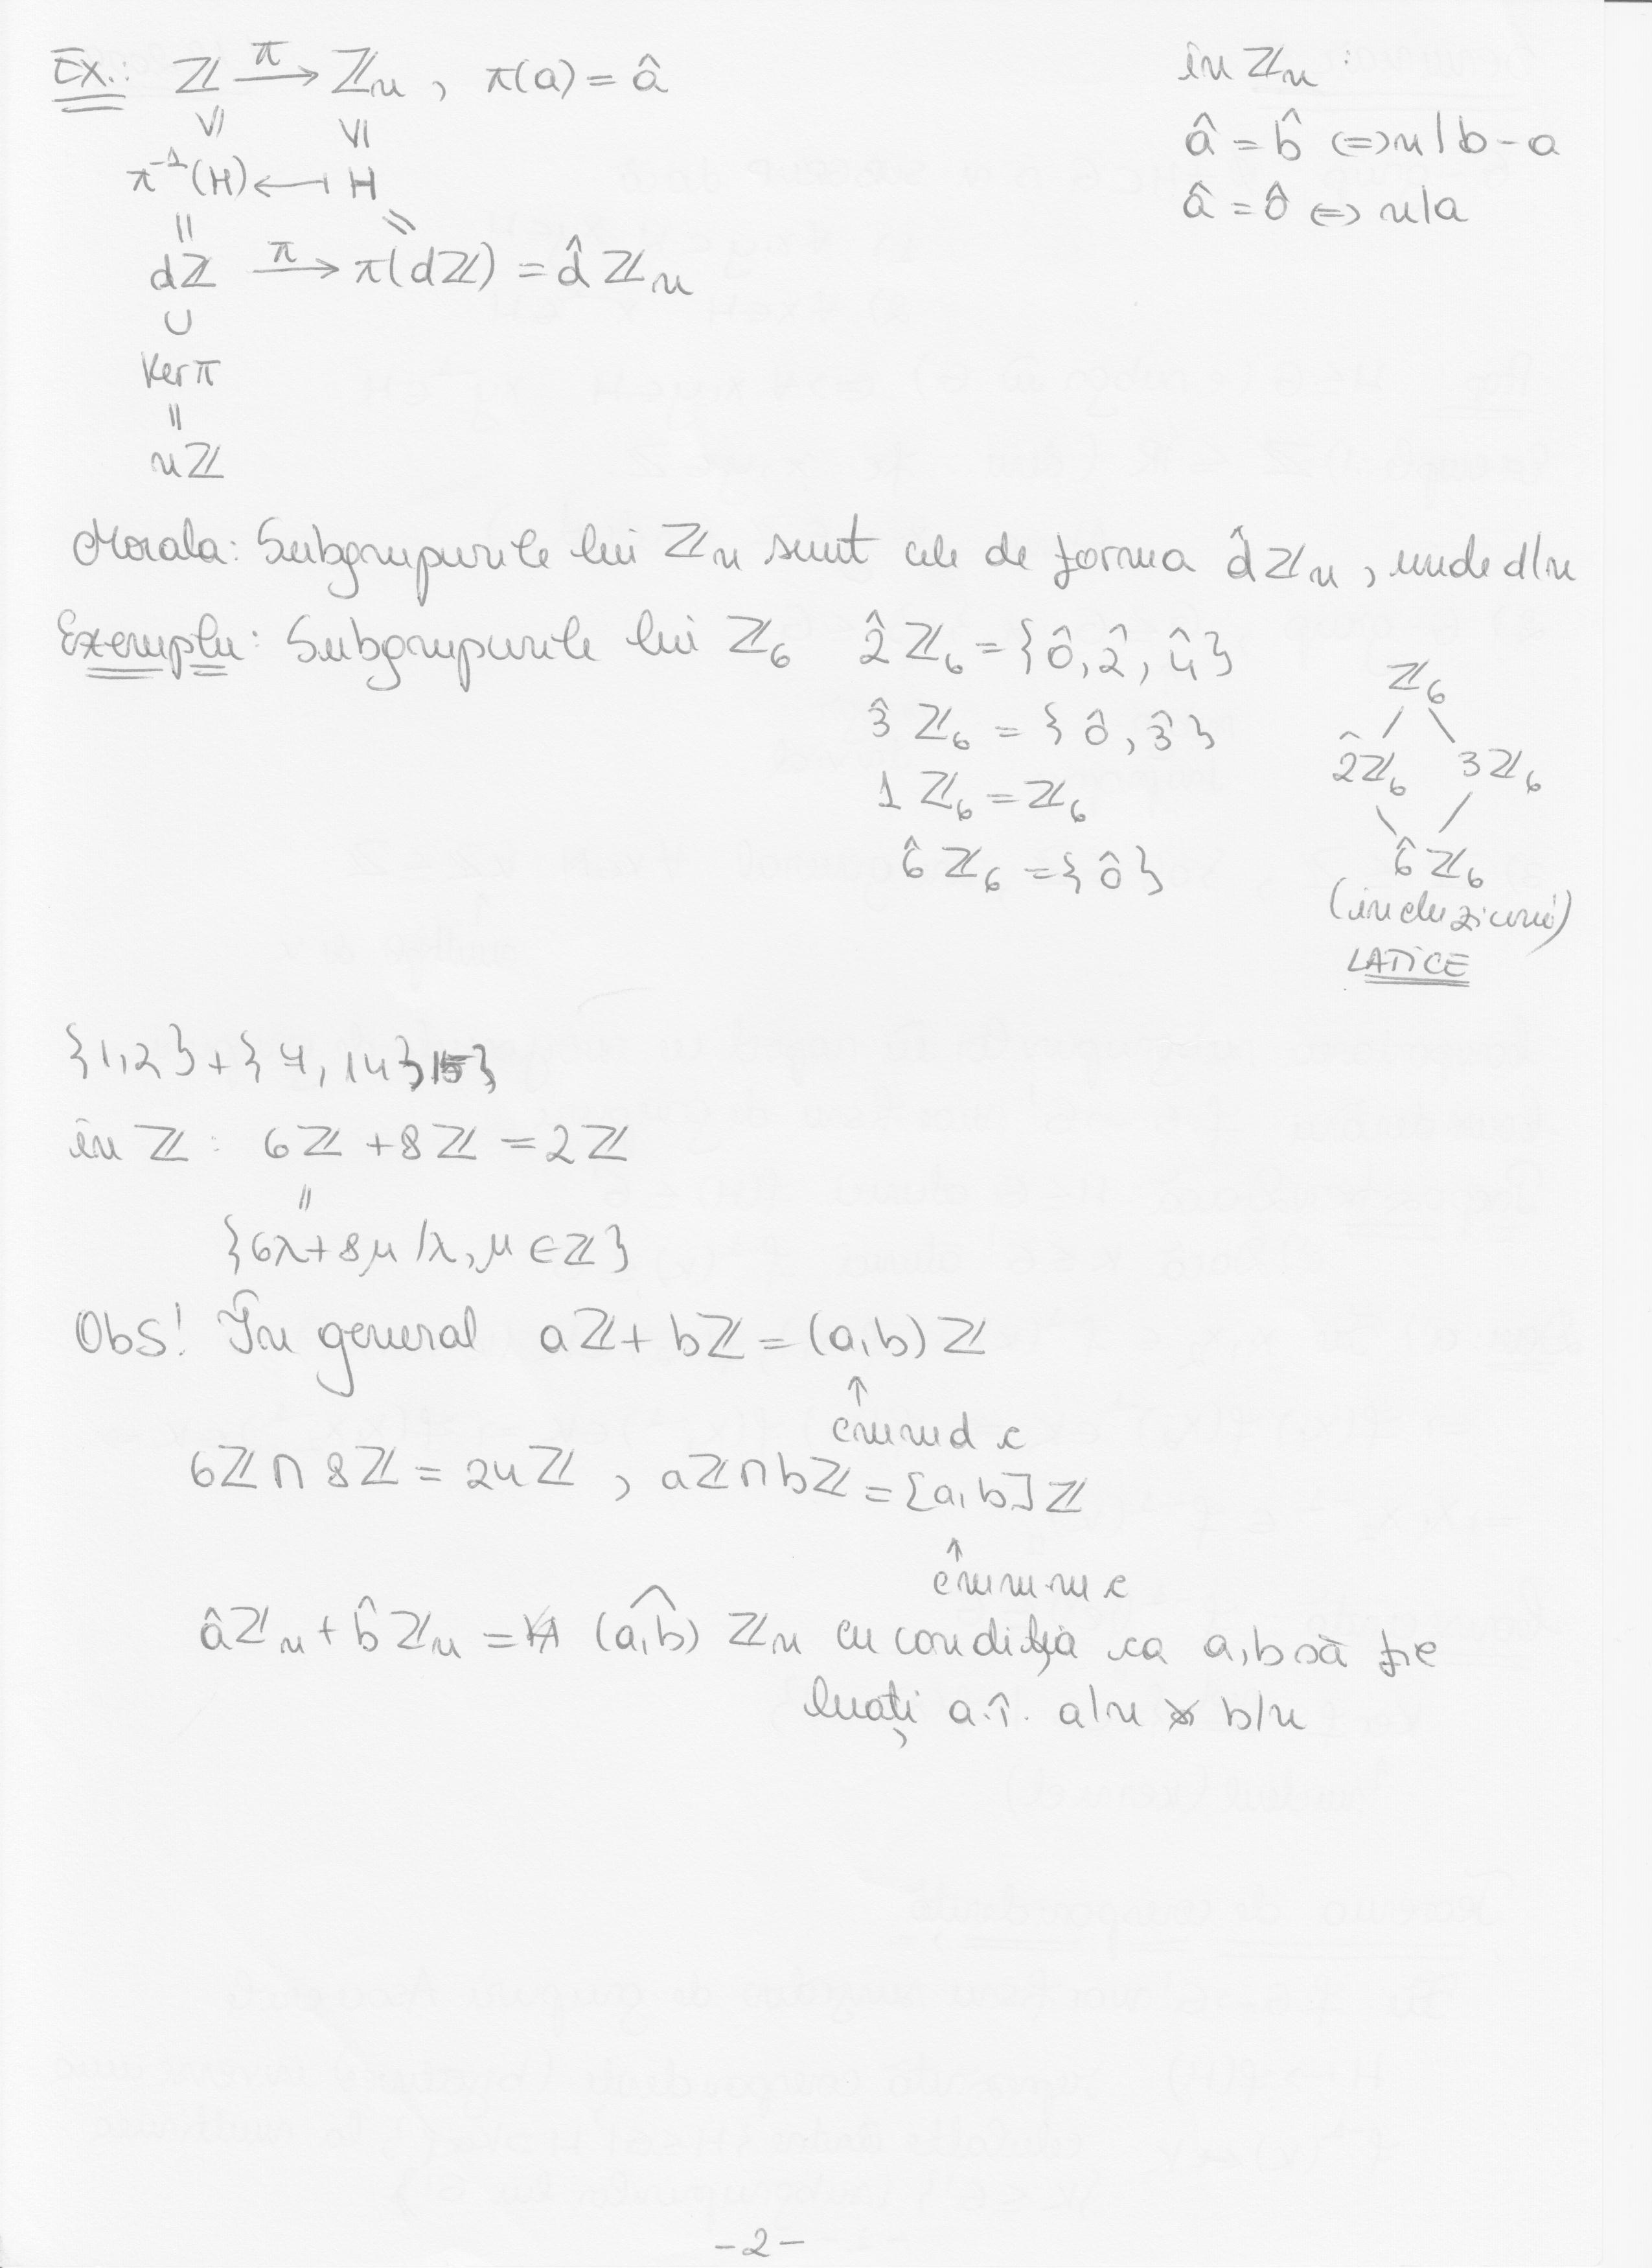 Ex.: ℤ —π→ ℤn , π(a) = â
în ℤn :
VI VI
â = b̂ ⇔ n | b - a
π⁻¹(H) ←—| H
â = 0̂ ⇔ n|a
||
dℤ —π→ π(dℤ) = d̂ ℤn
∪
Ker π
||
nℤ
Morala: Subgrupurile lui ℤn sunt cele de forma d̂ℤn , unde d|n
Exemplu: Subgrupurile lui ℤ6 2̂ ℤ6 = {0̂, 2̂, 4̂}
3̂ ℤ6 = {0̂, 3̂}
1 ℤ6 = ℤ6
6̂ ℤ6 = {0̂}
ℤ6
2̂ℤ6 3ℤ6
6̂ ℤ6
(incluziuni)
LATICE
{1,2} + {
în ℤ : 6ℤ + 8ℤ = 2ℤ
||
{6λ+8μ / λ, μ ∈ ℤ}
Obs! În general aℤ + bℤ = (a,b) ℤ
↑
cmmdc
6ℤ ∩ 8ℤ = 24ℤ , aℤ ∩ bℤ = [a,b] ℤ
↑
cmmmc
âℤn + b̂ ℤn = (a,b)^ ℤn cu condiția ca a,b să fie
luați a.î. a|n b|n
-2-